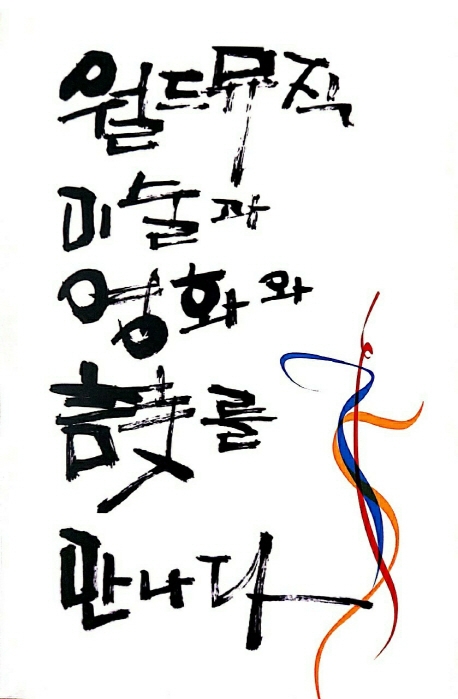 월드뮤직
미술과
영화와
詩를
만나다